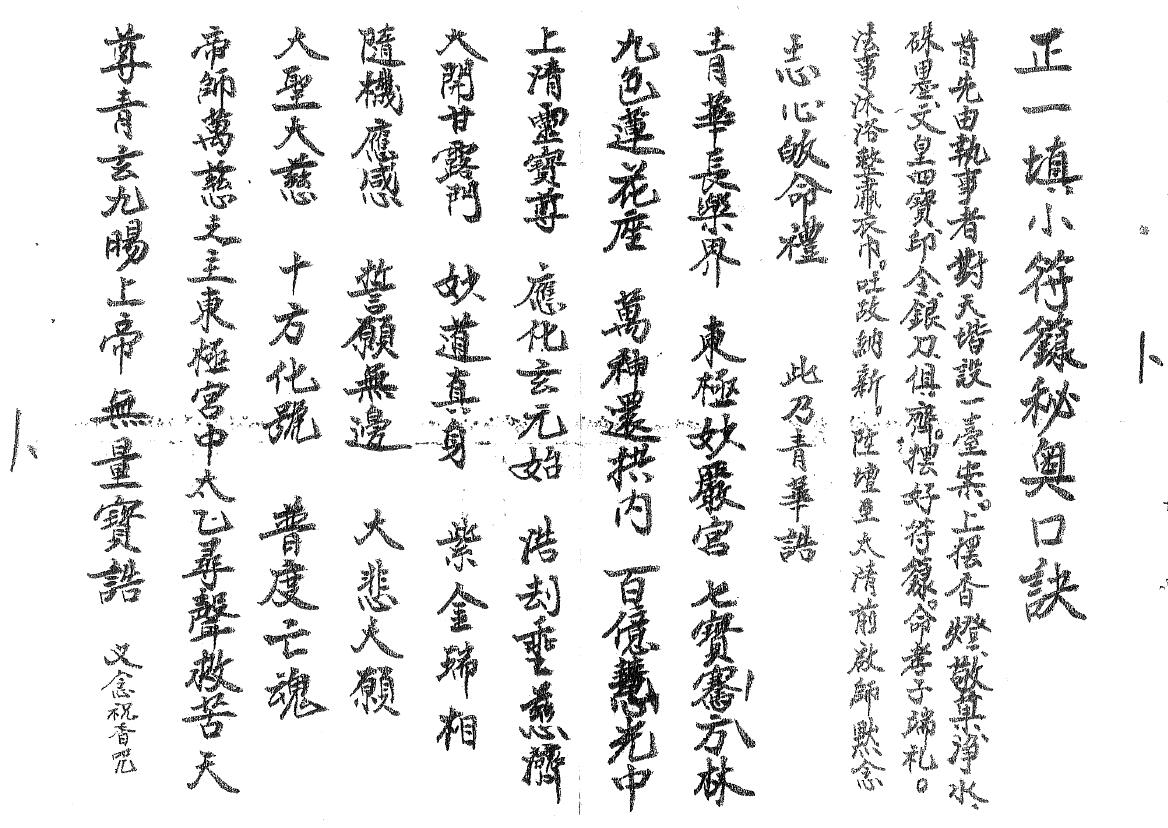 正一填小符籙秘奧口訣
首先由執事者對天堦設一臺案。上擺香燈、敬菓、淨水、
硃墨、文皇四寶、印全、銀刀俱齊。擺好符籙。命孝子端礼。
法事沐浴整肅衣巾。吐故納新。陞壇至太清前啟師默念
志心皈命禮 此乃青華誥
青華長樂界 東極妙嚴宮 七寶騫方林
九色蓮花座 萬神還拱内 百億慧光中
上清靈寶尊 應化玄元始 浩刼垂慈濟
大開甘露門 妙道真身 紫金瑞相
隨機應感 誓願無邊 大悲大願
大聖大慈 十方化號 普度亡魂
帝師萬慈之主東極宮中太乙尋聲救苦天
尊青玄九暘上帝 無量寶誥 又念祝香咒